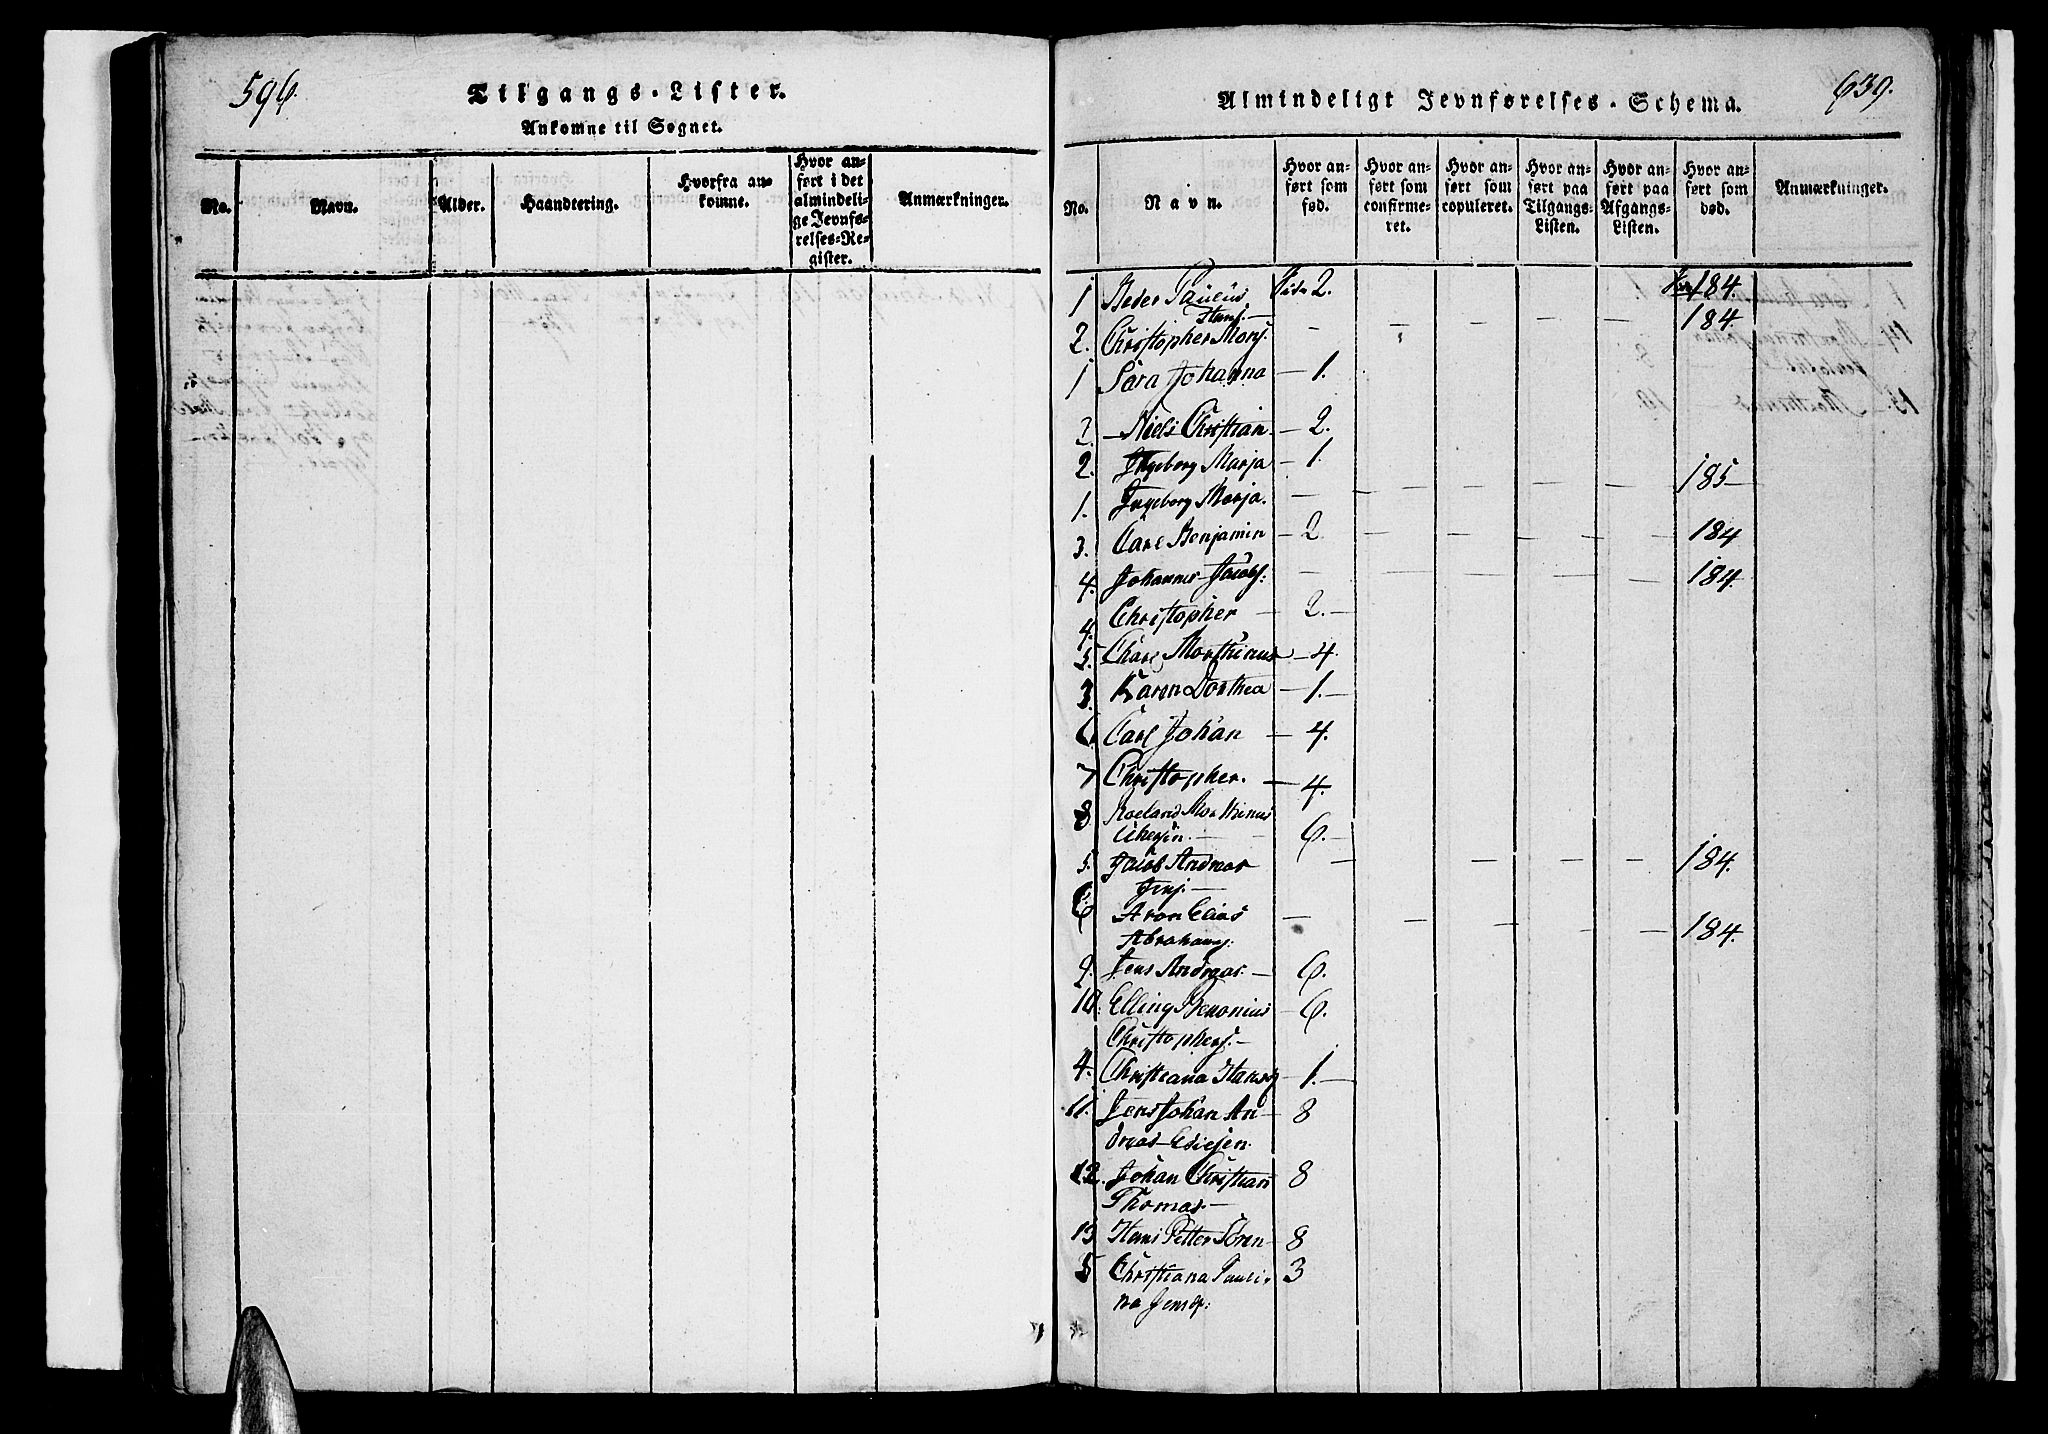 596.
Tilgangs-Lister.
Ankomne til Sognet.
No.
Navn.
Alder.
Haandtering.
Hvorfra an-
komne.
Hvor an-
ført i det
almindeli-
ge Jevnfø-
relses-Re-
gister.
Anmærkninger.
Almindeligt Jevnførelses-Schema.
639.
No.
Navn.
Hvor an-
ført som
fød.
Hvor an-
ført som
confirme-
ret.
Hvor an-
ført som
copuleret.
Hvor an-
ført paa
Tilgangs-
Listen.
Hvor an-
ført paa
Afgangs-
Listen.
Hvor an-
ført som
død.
Anmærkninger.
1 Peder Paulus 2. 184.
Hans.
2. Christopher Mons. — — — — — 184.
1 Sara Johanna — 1.
2. Niels Christian — 2.
2. Ingeborg Marja — 1.
1. Ingeborg Marja. — — — — — — 185
3. Carl Benjamin — 2 — — — — 184
4. Johannes Jacobs. — — — — — 184.
4. Christopher — 2.
5 Charl Morthinus — 4.
3. Karen Dorthea — 1.
6. Carl Johan — 4.
7 Christopher. — 4.
8 Roeland Morthinus
6.
5. Jacob Andreas — — — — 184.
Jens.
6 Aron Elias — — — — — 184.
Abrahams.
9. Jens Andreas. — 6.
10. Elling — 6.
Christophers.
4. Christiana Hansd — 1.
11. Jens Johan An- 8
dreas
12. Johan Christian 8
Thomas
13 Hans Petter Sören 8
5 Christiana Pauli- 3
na Jensd.